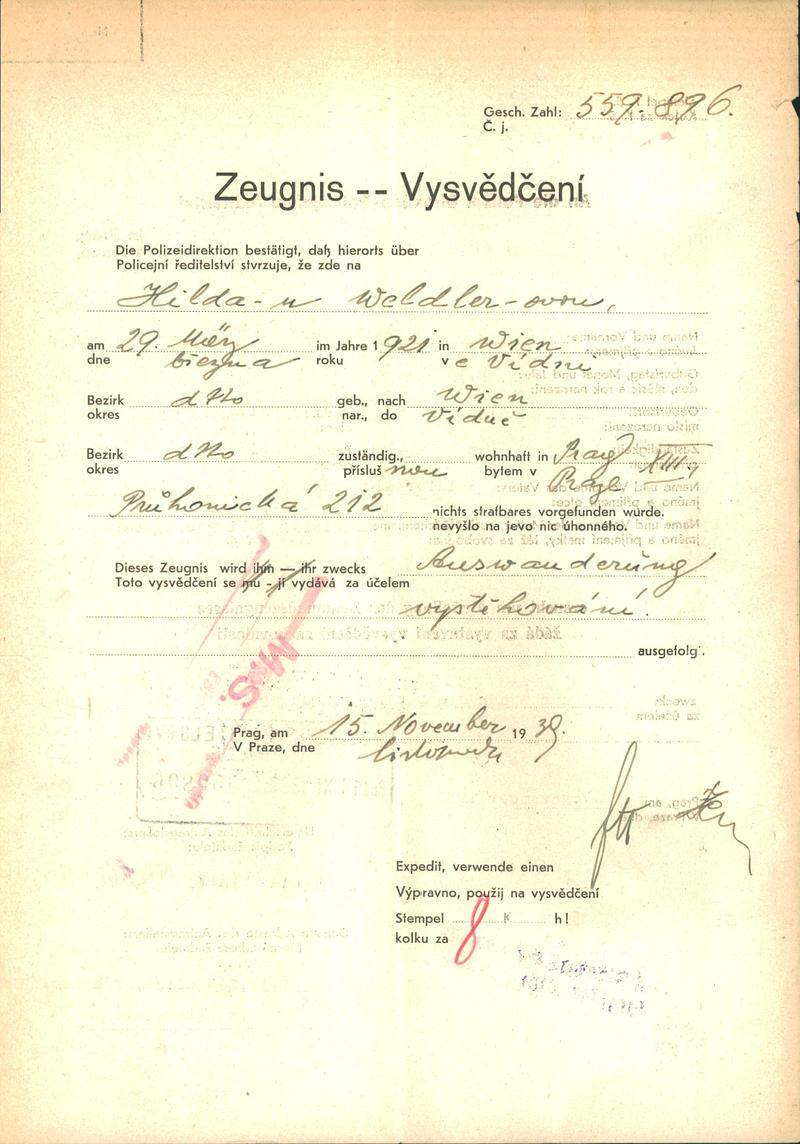 Gesch. Zahl: 559.896.
Č. j.
Zeugnis -- Vysvědčení
Die Polizeidirektion bestätigt, daß hierorts über
Policejní ředitelství stvrzuje, že zde na
Hilda-u Weldler-ovou,
am 29. März im Jahre 1921 in Wien
dne března roku v e Vídni
Bezirk dtto geb., nach Wien
okres nar., do Vídně
Bezirk dtto zuständig., wohnhaft in Prag XIII,
okres přísluš nou bytem v Praze
Průhonická 212 nichts strafbares vorgefunden wurde.
nevyšlo na jevo nic úhonného.
Dieses Zeugnis wird ihm — ihr zwecks Auswanderung
Toto vysvědčení se mu - jí vydává za účelem
vystěhování.
ausgefolgt.
M.S.
Prag, am 15. November 1939.
V Praze, dne listopadu
Expedit, verwende einen
Výpravno, použij na vysvědčení
Stempel 8 K h!
kolku za